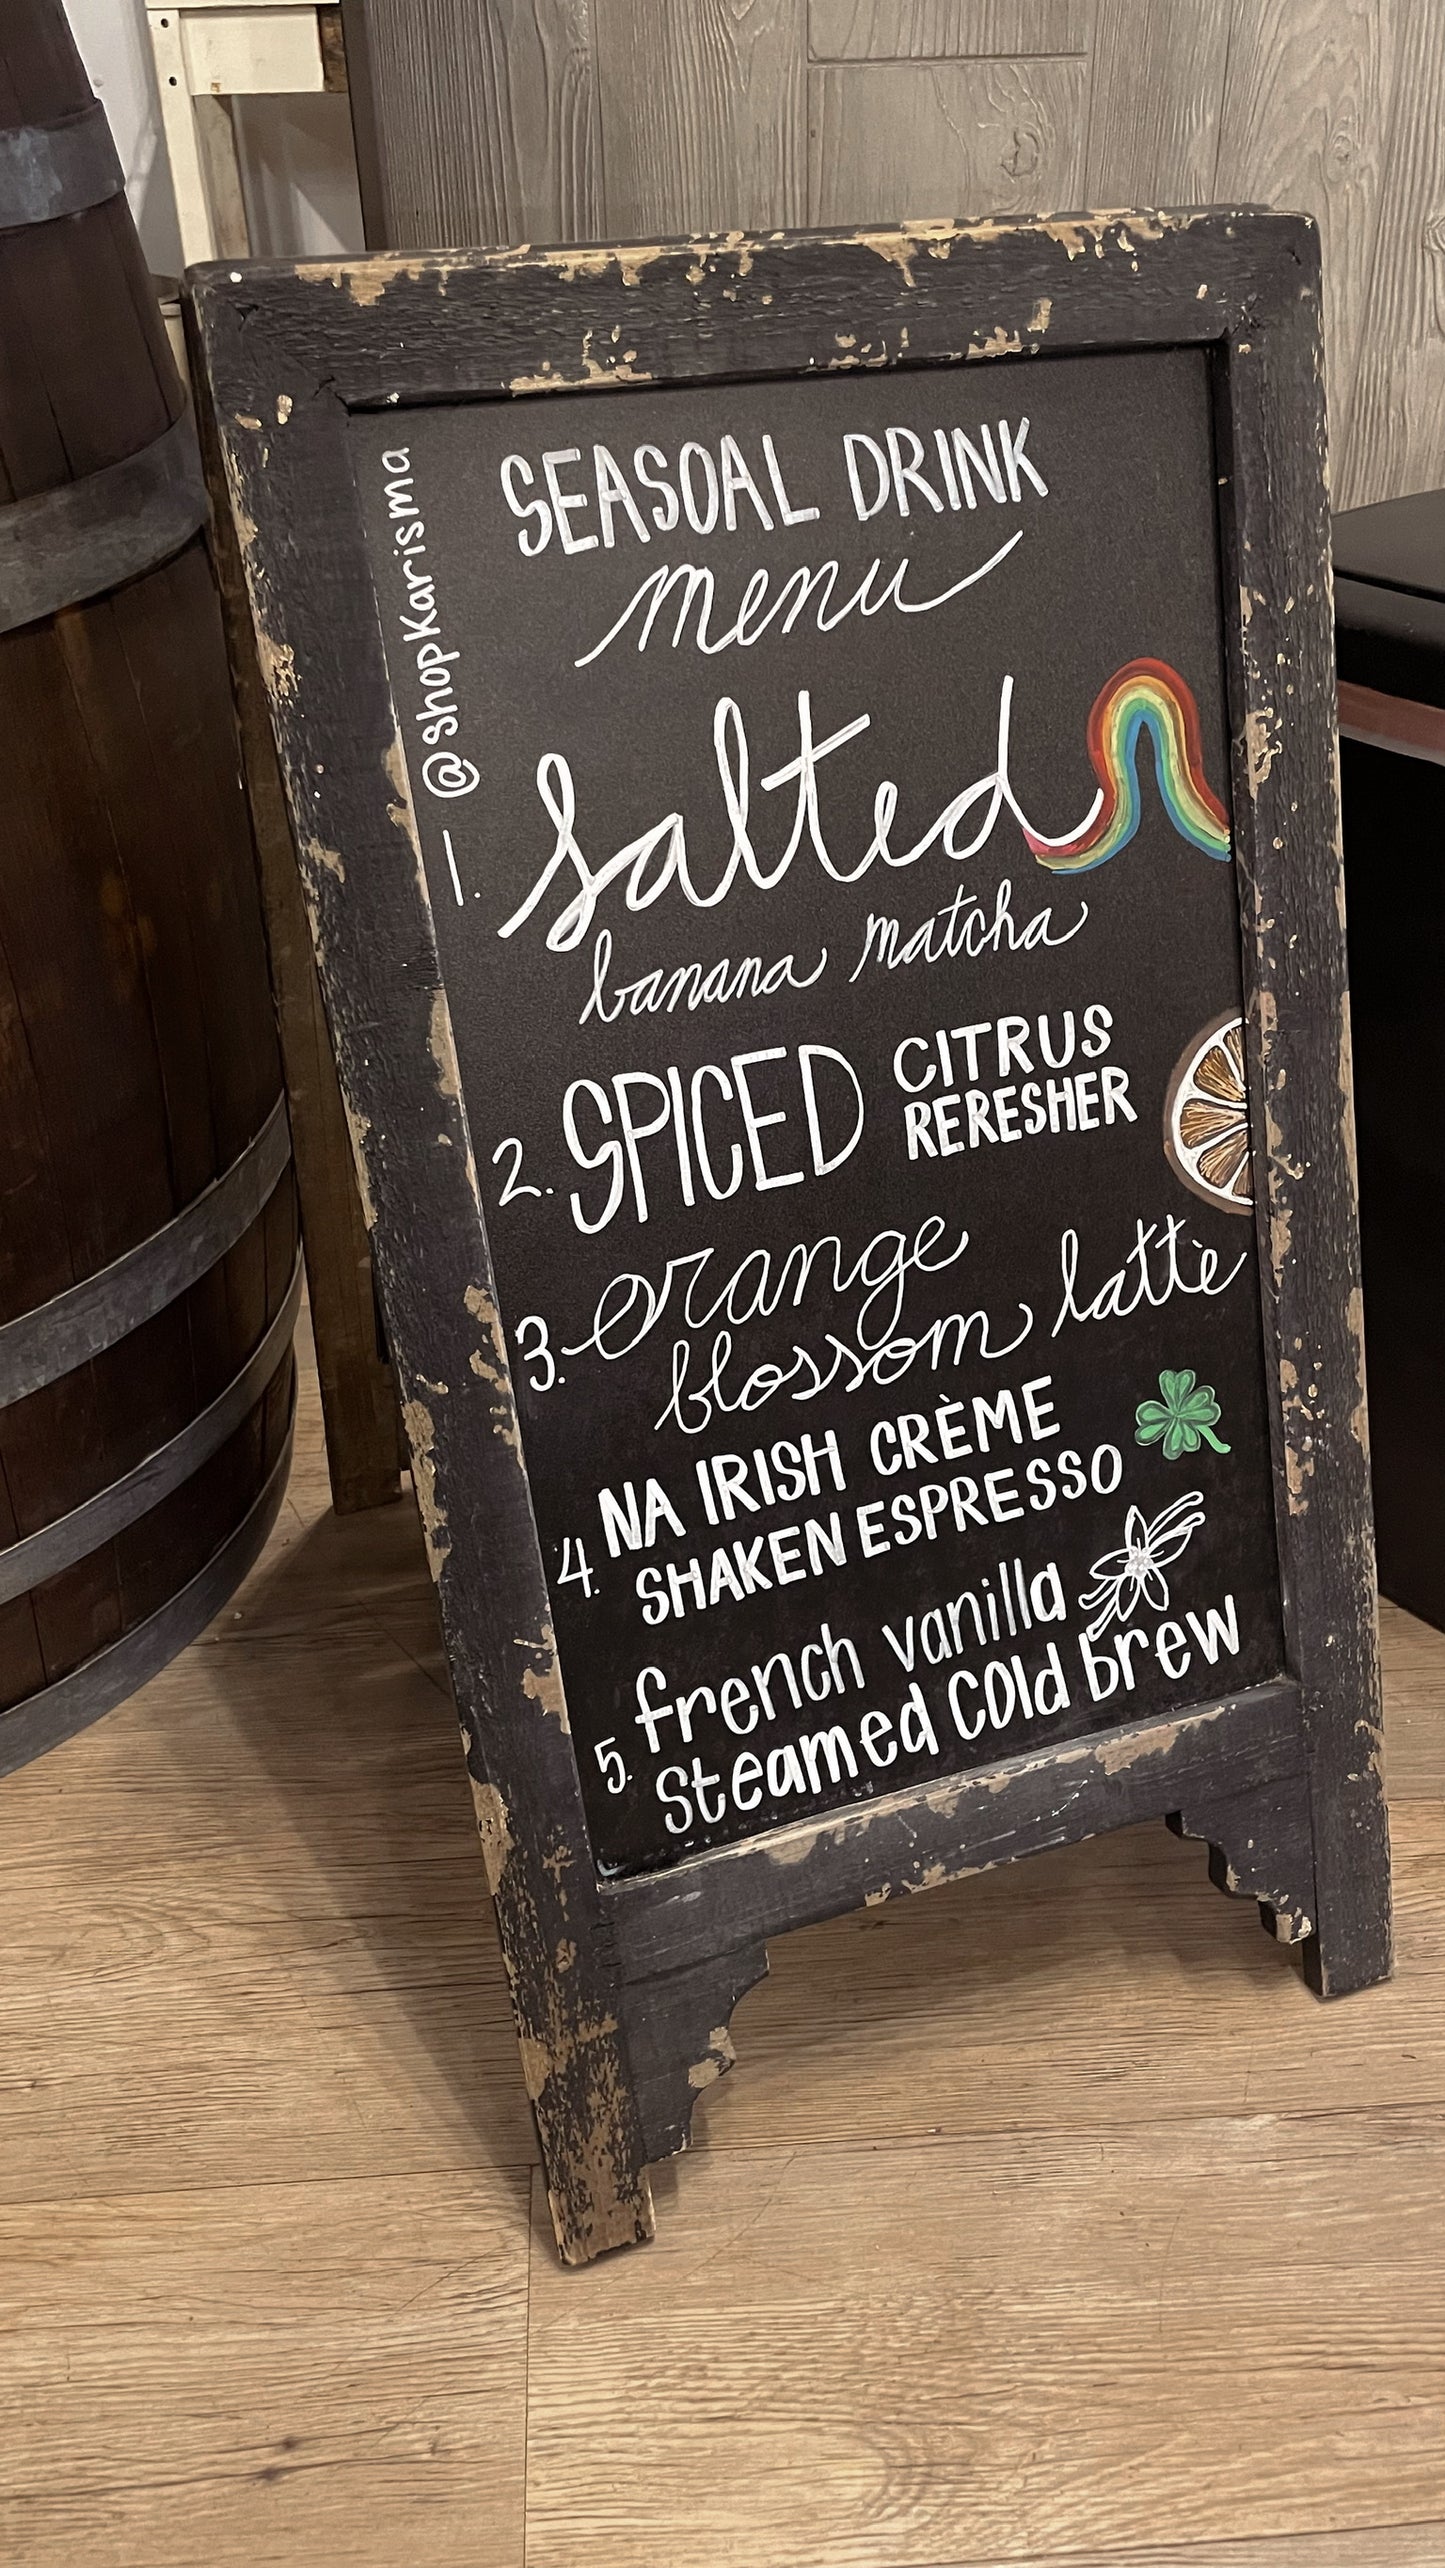 @shopkarisma
SEASOAL DRINK
menu
1. Salted
banana matcha
2. SPICED CITRUS
RERESHER
3. orange
blossom lattè
4. NA IRISH CRÈME
SHAKEN ESPRESSO
5. french vanilla
steamed cold brew